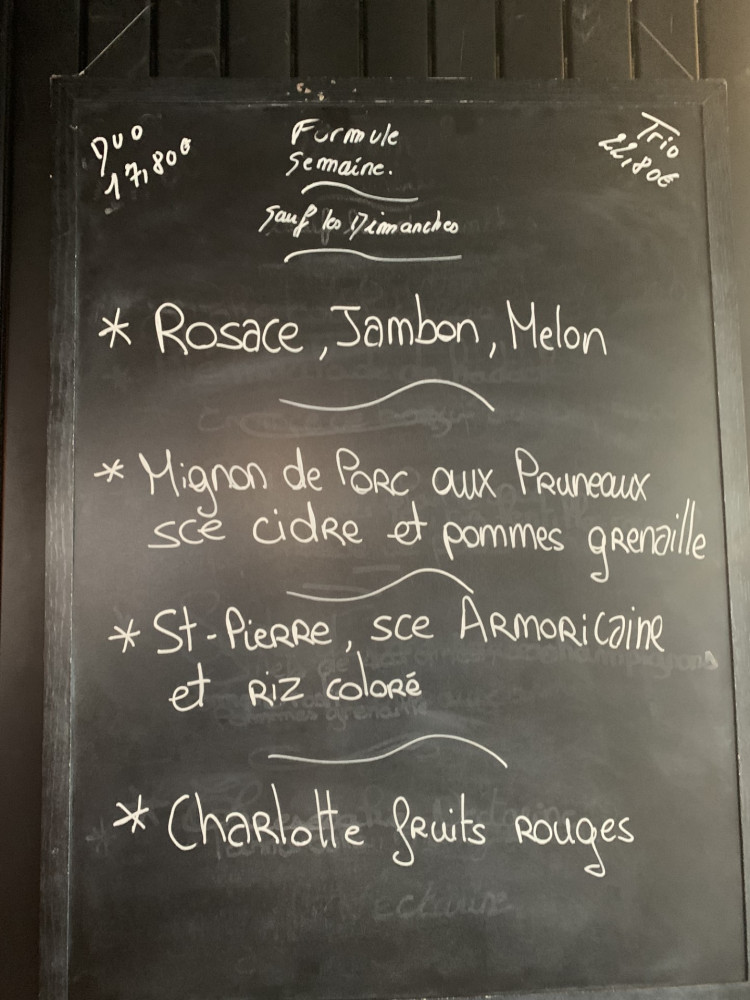 Duo
17,80€
Formule
Semaine.
Trio
22,80€
Sauf les Dimanches
* Rosace, Jambon, Melon
* Mignon de Porc aux Pruneaux
sce cidre et pommes grenaille
* St-Pierre, sce Armoricaine
et riz coloré
* Charlotte fruits rouges